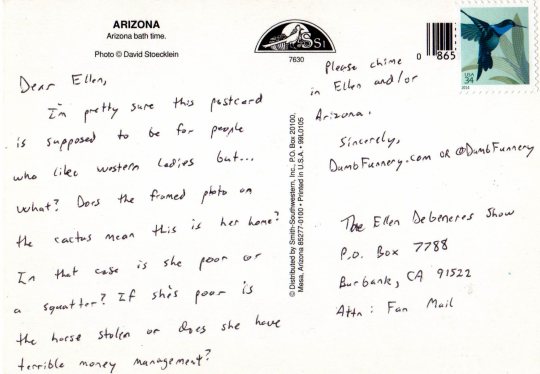 ARIZONA
Arizona bath time.
Photo © David Stoecklein
SSI
7630
0 865
USA
34
2014
Dear Ellen,
I'm pretty sure this postcard
is supposed to be for people
who like western ladies but...
What? Does the framed photo on
the cactus mean this is her home?
In that case is she poor or
a squatter? If she's poor is
the horse stolen or does she have
terrible money management?
© Distributed by Smith-Southwestern, Inc., P.O. Box 20100,
Mesa, Arizona 85277-0100 • Printed in U.S.A. • 99L0105
Please chime
in Ellen and/or
Arizona.
Sincerely,
DumbFunnery.com OR @DumbFunnery
The Ellen Debeneres Show
P.O. Box 7788
Burbank, CA 91522
Attn: Fan Mail